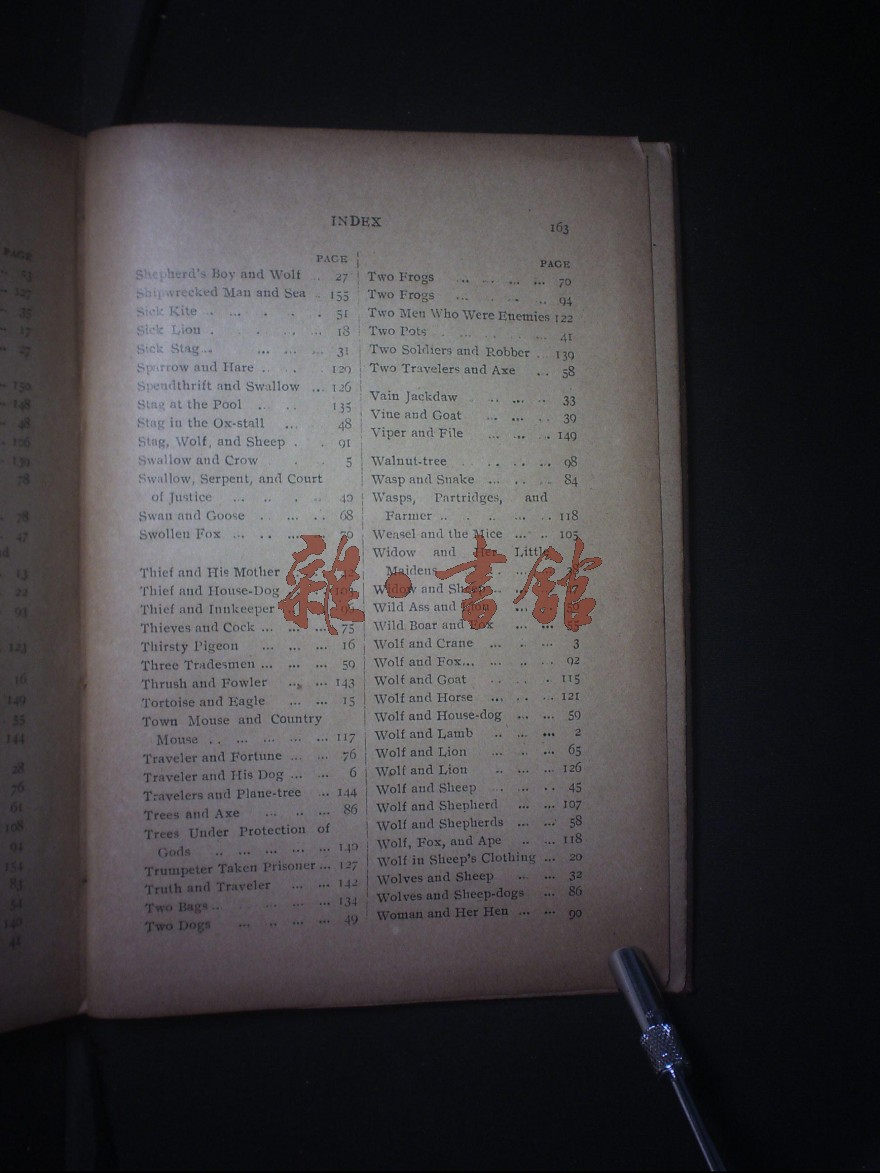 INDEX
163
PAGE
Shepherd's Boy and Wolf .. 27
Shipwrecked Man and Sea .. 155
Sick Kite ... ... . . . 51
Sick Lion . . . ... 18
Sick Stag ... ... ... ... 31
Sparrow and Hare .. . . 129
Spendthrift and Swallow ... 126
Stag at the Pool .. . . 135
Stag in the Ox-stall ... 48
Stag, Wolf, and Sheep . . 91
Swallow and Crow . . 5
Swallow, Serpent, and Court
of Justice ... .. . .. 40
Swan and Goose . ... . . 68
Swollen Fox ... . . ...
Thief and His Mother
Thief and House-Dog
Thief and Innkeeper
Thieves and Cock ... ... ... 75
Thirsty Pigeon ... ... ... 16
Three Tradesmen ... ... ... 59
Thrush and Fowler ... ... 143
Tortoise and Eagle ... ... 15
Town Mouse and Country
Mouse . . ... ... ... ... 117
Traveler and Fortune ... ... 76
Traveler and His Dog ... ... 6
Travelers and Plane-tree .. 144
Trees and Axe ... ... ... 86
Trees Under Protection of
Gods .. ... ... ... ... 140
Trumpeter Taken Prisoner ... 127
Truth and Traveler ... ... 142
Two Bags .. . ... ... ... 134
Two Dogs ... .. ... ... 49
PAGE
Two Frogs .. ... ... ... 70
Two Frogs ... . ... .. 94
Two Men Who Were Enemies 122
Two Pots . . ... . .. 41
Two Soldiers and Robber .. 139
Two Travelers and Axe ... 58
Vain Jackdaw . .. ... .. 33
Vine and Goat ... ... . 39
Viper and File ... ... .. 149
Walnut-tree . . . ... . 98
Wasp and Snake ... .. . . 84
Wasps, Partridges, and
Farmer .. . ... ... . .. 118
Weasel and the Mice ... .. 105
Widow and Her Little
Maidens
Widow and Sheep
Wild Ass and Lion
Wild Boar and Fox ... ... 55
Wolf and Crane ... . ... 3
Wolf and Fox... ... ... .. 92
Wolf and Goat . . . . 115
Wolf and Horse ... . . .. 121
Wolf and House-dog ... ... 59
Wolf and Lamb .. ... ... 2
Wolf and Lion ... ... .. 65
Wolf and Lion .. ... ... 126
Wolf and Sheep ... ... . . 45
Wolf and Shepherd ... ... 107
Wolf and Shepherds ... ... 58
Wolf, Fox, and Ape .. ... 118
Wolf in Sheep's Clothing ... 20
Wolves and Sheep .. ... 32
Wolves and Sheep-dogs ... 86
Woman and Her Hen ... ... 90
雜·書館